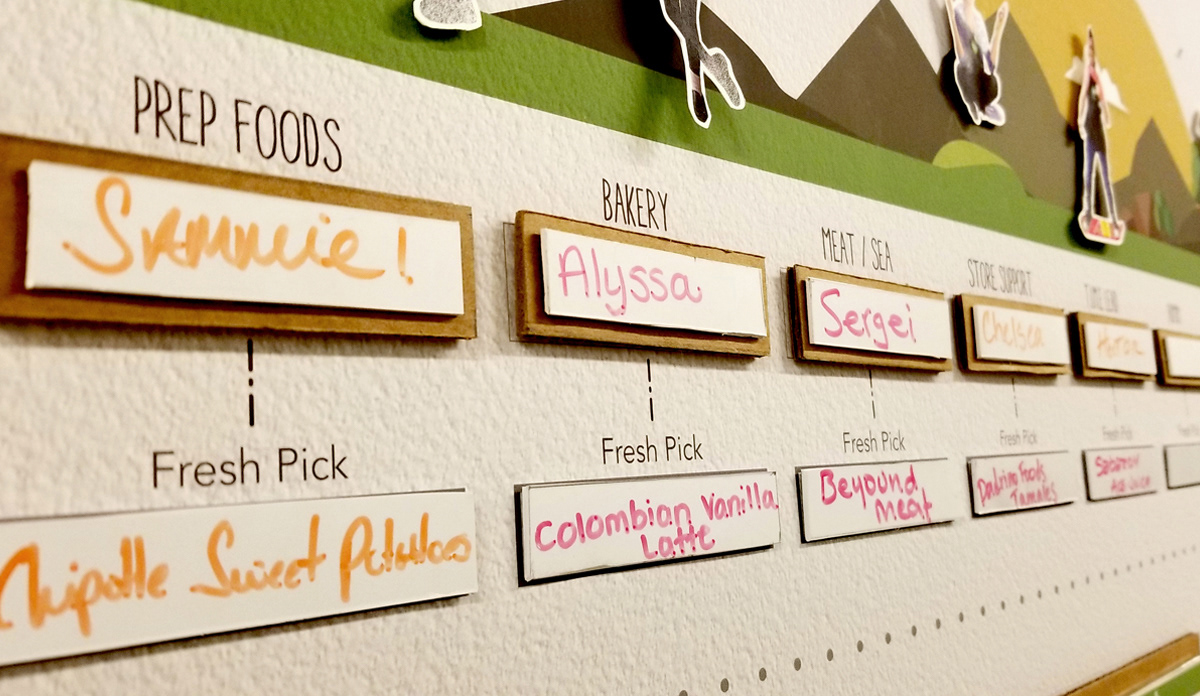 PREP FOODS
Sammie!
Fresh Pick
Chipotle Sweet Potatoes
BAKERY
Alyssa
Fresh Pick
Colombian Vanilla
Latte
MEAT / SEA
Sergei
Fresh Pick
Beyound
Meat
STORE SUPPORT
Chelsea
Fresh Pick
Foods
Tamales
Fresh Pick